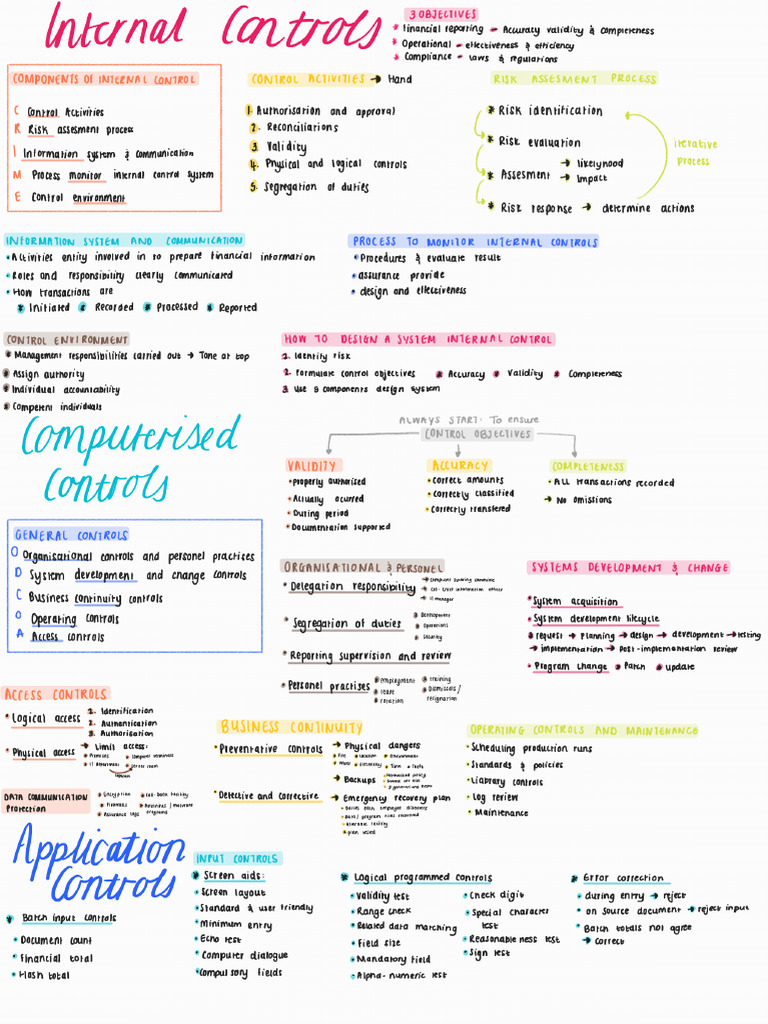 Internal Controls
3 OBJECTIVES
Financial reporting - Accuracy validity & completeness
Operational - effectiveness & efficiency
Compliance - Laws & regulations
COMPONENTS OF INTERNAL CONTROL
C Control Activities
R Risk assesment process
I Information system & communication
M Process monitor internal control system
E Control environment
CONTROL ACTIVITIES → Hand
1. Authorisation and approval
2. Reconciliations
3. Validity
4. Physical and logical controls
5. Segregation of duties
RISK ASSESMENT PROCESS
* Risk identification
* Risk evaluation
* Assesment → likelyhood
→ Impact
* Risk response → determine actions
iterative
process
INFORMATION SYSTEM AND COMMUNICATION
• Activities entity involved in to prepare financial information
• Roles and responsibility clearly communicated
• How transactions are
* Initiated * Recorded * Processed * Reported
PROCESS TO MONITOR INTERNAL CONTROLS
• Procedures & evaluate result
• assurance provide
• design and effectiveness
CONTROL ENVIRONMENT
* Management responsibilities carried out → Tone at top
* Assign authority
* Individual accountability
* Competent individuals
HOW TO DESIGN A SYSTEM INTERNAL CONTROL
1. Identity risk
2. Formulate control objectives * Accuracy * Validity * Completeness
3. Use 5 components design system
Computerised
Controls
ALWAYS START: To ensure
CONTROL OBJECTIVES
VALIDITY
• Properly authorised
• Actually ocurred
• During period
• Documentation supported
ACCURACY
• Correct amounts
• Correctly classified
• Correctly transfered
COMPLETENESS
• ALL transactions recorded
→ No omissions
GENERAL CONTROLS
O Organisational controls and personel practises
D System development and change controls
C Business continuity controls
O Operating controls
A Access controls
ORGANISATIONAL & PERSONEL
• Delegation responsibility
→ IT manager
• Segregation of duties
* Development
* Operations
* Security
• Reporting supervision and review
• Personel practises * Employment * training
* leave * Dismissals /
* rotation resignation
SYSTEMS DEVELOPMENT & CHANGE
* System acquisition
* System development lifecycle
* request → Planning → design → development → testing
→ implementation → Post-implementation review
* Program change * Patch * update
ACCESS CONTROLS
• Logical access 1. Identification
2. Authentication
3. Authorisation
• Physical access → Limit access:
* Premises * Computer terminals
* IT department * Server room
DATA COMMUNICATION
Protection
* Encryption * Call-back facility
* Firewalls * Antivirus / malware
* Assurance logo programs
BUSINESS CONTINUITY
• Preventative controls → Physical dangers
* Fire * Location * Environment
* Water * Electricity * Time
→ Backups
• Detective and corrective → Emergency recovery plan
• plan tested
OPERATING CONTROLS AND MAINTENANCE
• Scheduling production runs
• Standards & policies
• Library controls
• Log review
• Maintenance
Application
Controls
* Batch input controls
• Document count
• Financial total
• Hash total
INPUT CONTROLS
* Screen aids:
• Screen layout
• Standard & user friendly
• Minimum entry
• Echo test
• Computer dialogue
• Compulsory fields
* Logical programmed controls
• Validity test
• Range check
• Related data matching
• Field size
• Mandatory field
• Alpha-numeric test
• Check digit
• Special character
test
• Reasonableness test
• Sign test
* Error correction
• during entry → reject
• on source document → reject input
• Batch totals not agree
→ correct